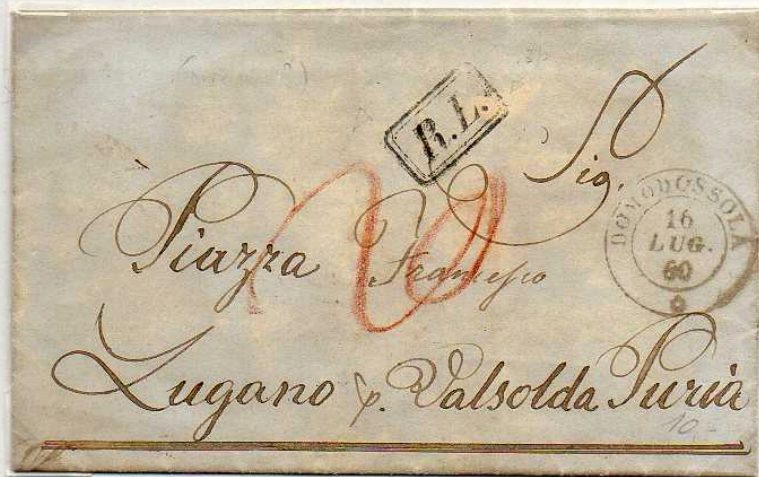 R.L.
Sig.
DOMODOSSOLA
16
LUG.
60
Piazza Francesco
Lugano p. Valsolda Puria
10.-